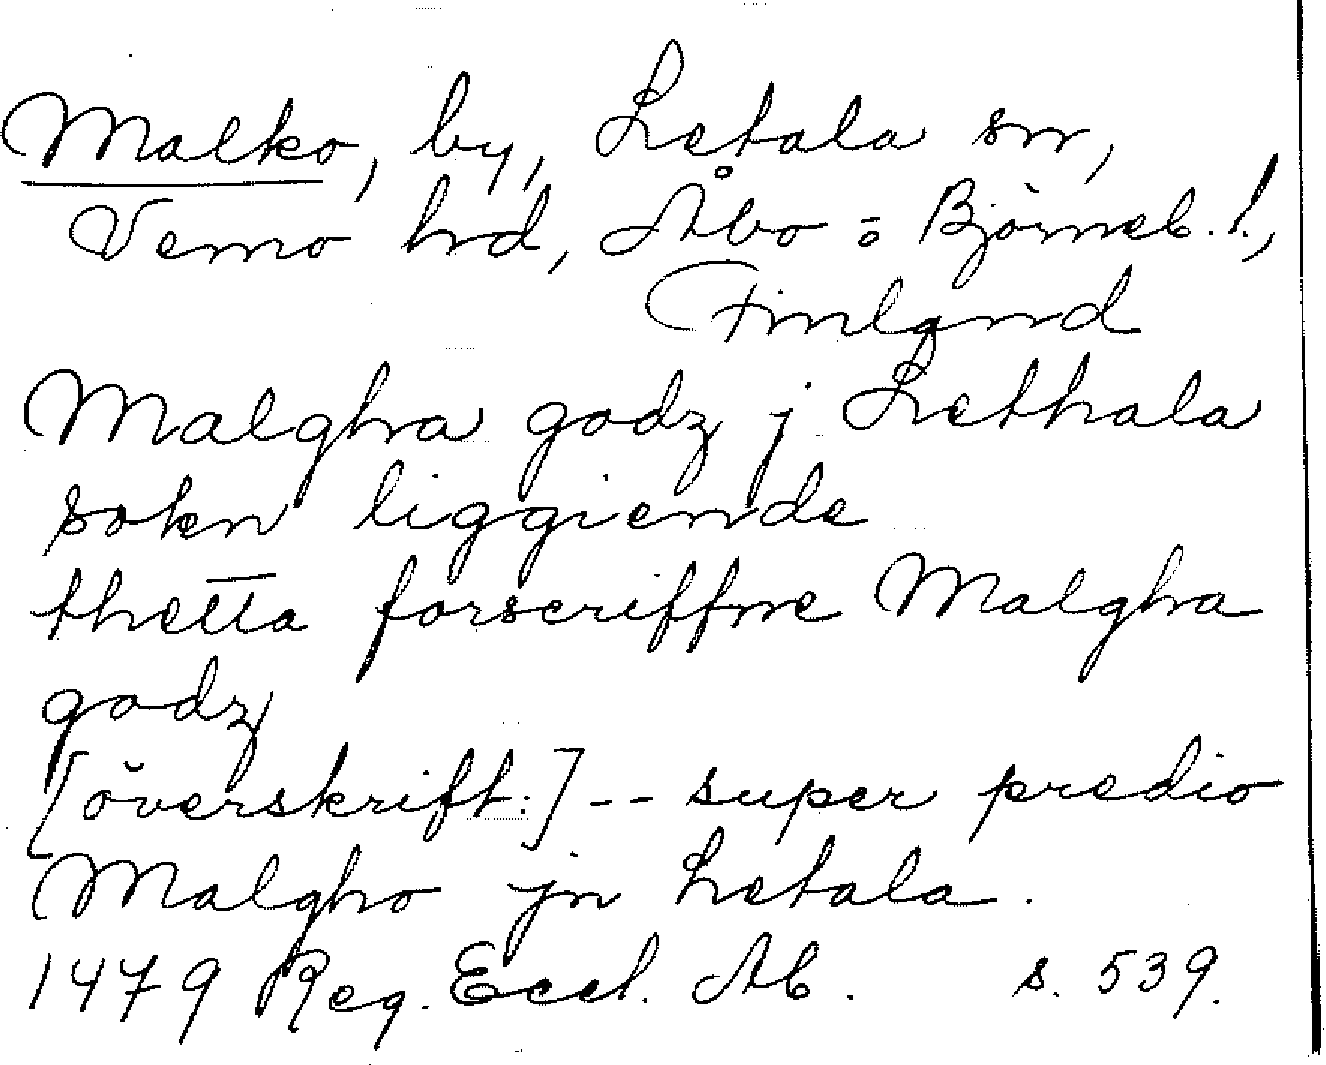 Malko, by, Letala sn,
Vemo hd, Åbo = Björneb. l.,
Finland
Malgha godz j Lethala
sokn liggiende
thetta forscriffne Malgha
godz
[överskrift:] -- super predio
Malgho jn Letala.
1479 Reg. Eccl. Ab. s. 539.